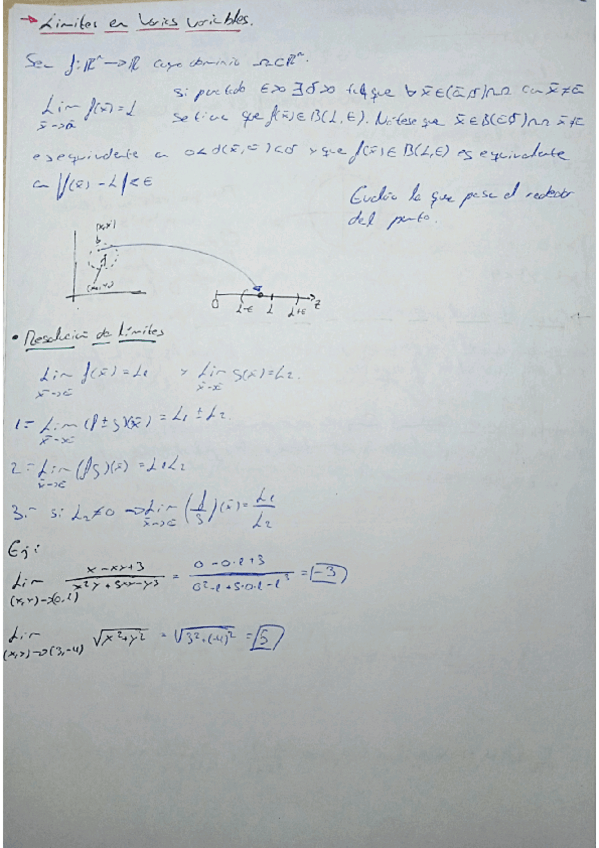 → Límites en varias variables.
Sea f: ℝⁿ → ℝ cuyo dominio Ω⊂ℝⁿ.
Lim f(x̄) = L si para todo ε>0 ∃ δ>0 tal que ∀ x̄ ∈ (ā,δ)∩Ω con x̄≠ā
x̄→ā se tiene que f(x̄)∈B(L,ε). Nótese que x̄∈B(ā,δ)∩Ω x̄≠ā
es equivalente a 0<d(x̄,ā)<δ y que f(x̄)∈B(L,ε) es equivalente
a |f(x̄) - L|<ε
Evalúa lo que pasa alrededor
del punto.
(x,y)
0 L-ε L L+ε z
• Resolución de límites
Lim f(x̄) = L₁ y Lim g(x̄) = L₂.
x̄→ā x̄→ā
1.- Lim (f±g)(x̄) = L₁ ± L₂.
x̄→ā
2.- Lim (fg)(x̄) = L₁L₂
x̄→ā
3.- si L₂≠0 → Lim (f/g)(x̄) = L₁/L₂
x̄→ā
Ej:
Lim (x-xy+3)/(x²y+5xy-y³) = (0-0·1+3)/(0²·1+5·0·1-1³) = -3
(x,y)→(0,1)
Lim √(x²+y²) = √(3²+(-4)²) = 5
(x,y)→(3,-4)